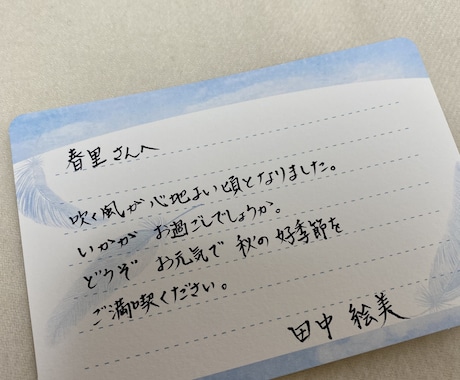 春里さんへ
吹く風が心地よい頃となりました。
いかが お過ごしでしょうか。
どうぞ お元気で 秋の 好季節を
ご満喫ください。
田中 絵美